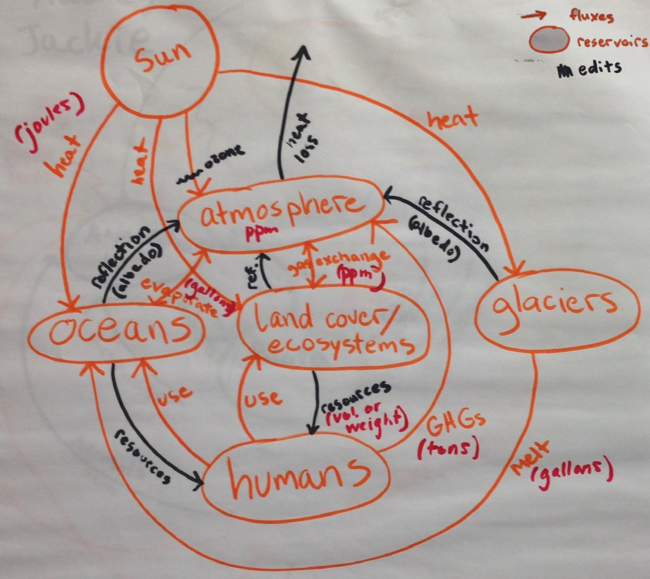 Jackie
fluxes
reservoirs
edits
Sun
(joules)
heat
heat
ozone
heat
loss
heat
atmosphere
ppm
reflection
(albedo)
reflection
(albedo)
ref.
gas exchange
(ppm)
evaporate
(gallons)
oceans
land cover/
ecosystems
glaciers
use
use
resources
resources
(vol. or
weight)
GHGs
(tons)
melt
(gallons)
humans